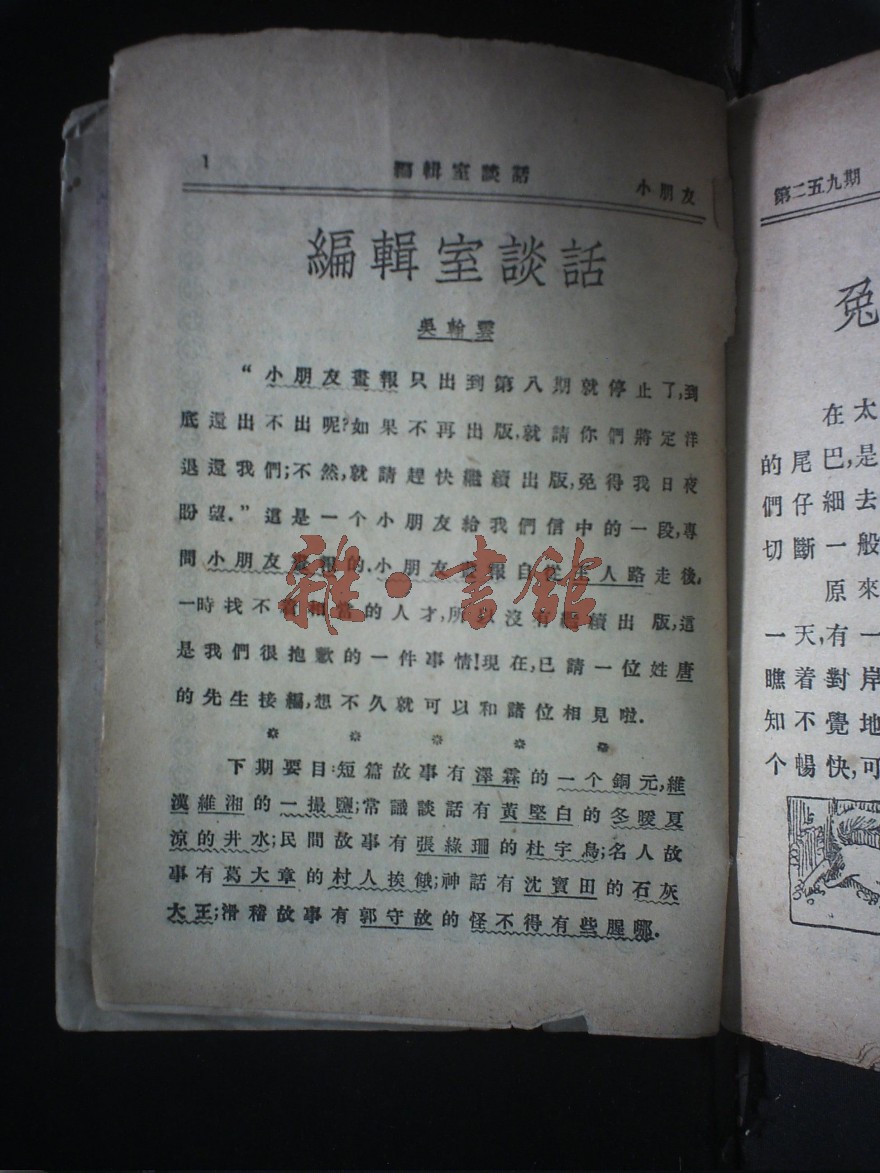 1 編輯室談話 小朋友
編輯室談話
吳翰雲
“小朋友畫報只出到第八期就停止了,到
底還出不出呢?如果不再出版,就請你們將定洋
退還我們;不然,就請趕快繼續出版,免得我日夜
盼望.”這是一个小朋友給我們信中的一段,專
問小朋友畫報的.小朋友畫報自從王人路走後,
一時找不着相當的人才,所以沒有繼續出版,這
是我們很抱歉的一件事情!現在,已請一位姓唐
的先生接編,想不久就可以和諸位相見啦.
下期要目:短篇故事有澤霖的一个銅元,維
漢維湘的一撮鹽;常識談話有黃堅白的冬暖夏
涼的井水;民間故事有張綠珊的杜宇鳥;名人故
事有葛大章的村人挨餓;神話有沈寶田的石灰
大王;滑稽故事有郭守故的怪不得有些腥哪.
雅·書館
第二五九期
兔
在太
的尾巴,是
們仔細去
切斷一般
原來
一天,有一
瞧着對岸
知不覺地
个暢快,可